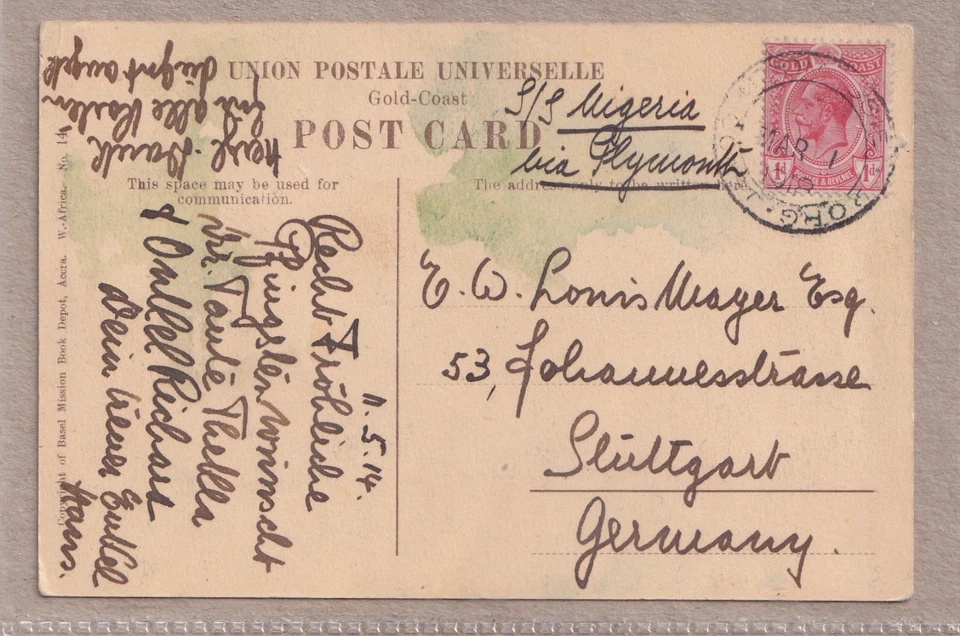 UNION POSTALE UNIVERSELLE
Gold-Coast
POST CARD
This space may be used for
communication.
The address only to be written here
S/S Nigeria
via Plymouth
GOLD COAST
POSTAGE & REVENUE
1d 1d
MAR 1
E. W. Louis Mayer Esq.
53, Johannesstrasse
Stuttgart
Germany.
11.5.14.
Recht Fröhliche
Pfingsten wünscht
Ihr. Tante Thekla
& Onkel Richard
Dein treuer Enkel
Hans.
Herzl. Dank
für alle Karten
Copyright of Basel Mission Book Depot, Accra. W.-Africa. No. 14